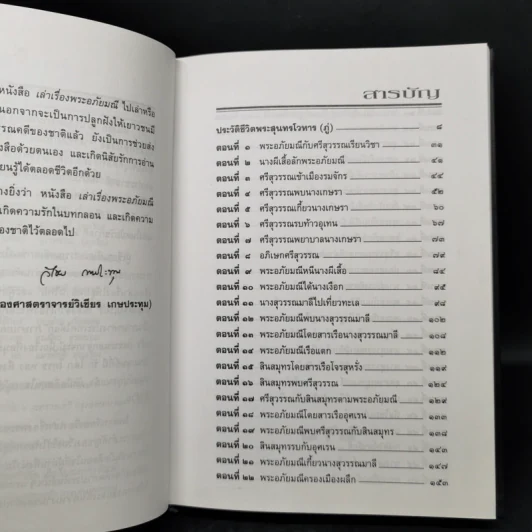 หนังสือ เล่าเรื่องพระอภัยมณี ไปเล่าหรือ
นอกจากจะเป็นการปลูกฝังให้เยาวชนมี
รณคดีของชาติแล้ว ยังเป็นการช่วยส่ง
สือด้วยตนเอง และเกิดนิสัยรักการอ่าน
ยนรู้ได้ตลอดชีวิตอีกด้วย
างยิ่งว่า หนังสือ เล่าเรื่องพระอภัยมณี
เกิดความรักในบทกลอน และเกิดความ
องชาติไว้ตลอดไป
องศาสตราจารย์วิเชียร เกษประทุม)
สารบัญ
ประวัติชีวิตพระสุนทรโวหาร (ภู่) ๘
ตอนที่ ๑ พระอภัยมณีกับศรีสุวรรณเรียนวิชา ๓๑
ตอนที่ ๒ นางผีเสื้อลักพระอภัยมณี ๔๑
ตอนที่ ๓ ศรีสุวรรณเข้าเมืองรมจักร ๔๔
ตอนที่ ๔ ศรีสุวรรณพบนางเกษรา ๕๒
ตอนที่ ๕ ศรีสุวรรณเกี้ยวนางเกษรา ๖๐
ตอนที่ ๖ ศรีสุวรรณรบท้าวอุเทน ๖๗
ตอนที่ ๗ ศรีสุวรรณพยาบาลนางเกษรา ๗๓
ตอนที่ ๘ อภิเษกศรีสุวรรณ ๗๙
ตอนที่ ๙ พระอภัยมณีหนีนางผีเสื้อ ๘๔
ตอนที่ ๑๐ พระอภัยมณีได้นางเงือก ๙๕
ตอนที่ ๑๑ นางสุวรรณมาลีไปเที่ยวทะเล ๙๘
ตอนที่ ๑๒ พระอภัยมณีพบนางสุวรรณมาลี ๑๐๒
ตอนที่ ๑๓ พระอภัยมณีโดยสารเรือนางสุวรรณมาลี ๑๐๘
ตอนที่ ๑๔ พระอภัยมณีเรือแตก ๑๑๒
ตอนที่ ๑๕ สินสมุทรโดยสารเรือโจรสุหรั่ง ๑๑๙
ตอนที่ ๑๖ สินสมุทรพบศรีสุวรรณ ๑๒๔
ตอนที่ ๑๗ ศรีสุวรรณกับสินสมุทรตามพระอภัยมณี ๑๒๙
ตอนที่ ๑๘ พระอภัยมณีโดยสารเรืออุศเรน ๑๓๓
ตอนที่ ๑๙ พระอภัยมณีพบศรีสุวรรณกับสินสมุทร ๑๓๘
ตอนที่ ๒๐ สินสมุทรรบกับอุศเรน ๑๔๓
ตอนที่ ๒๑ พระอภัยมณีเกี้ยวนางสุวรรณมาลี ๑๔๗
ตอนที่ ๒๒ พระอภัยมณีครองเมืองผลึก ๑๕๓